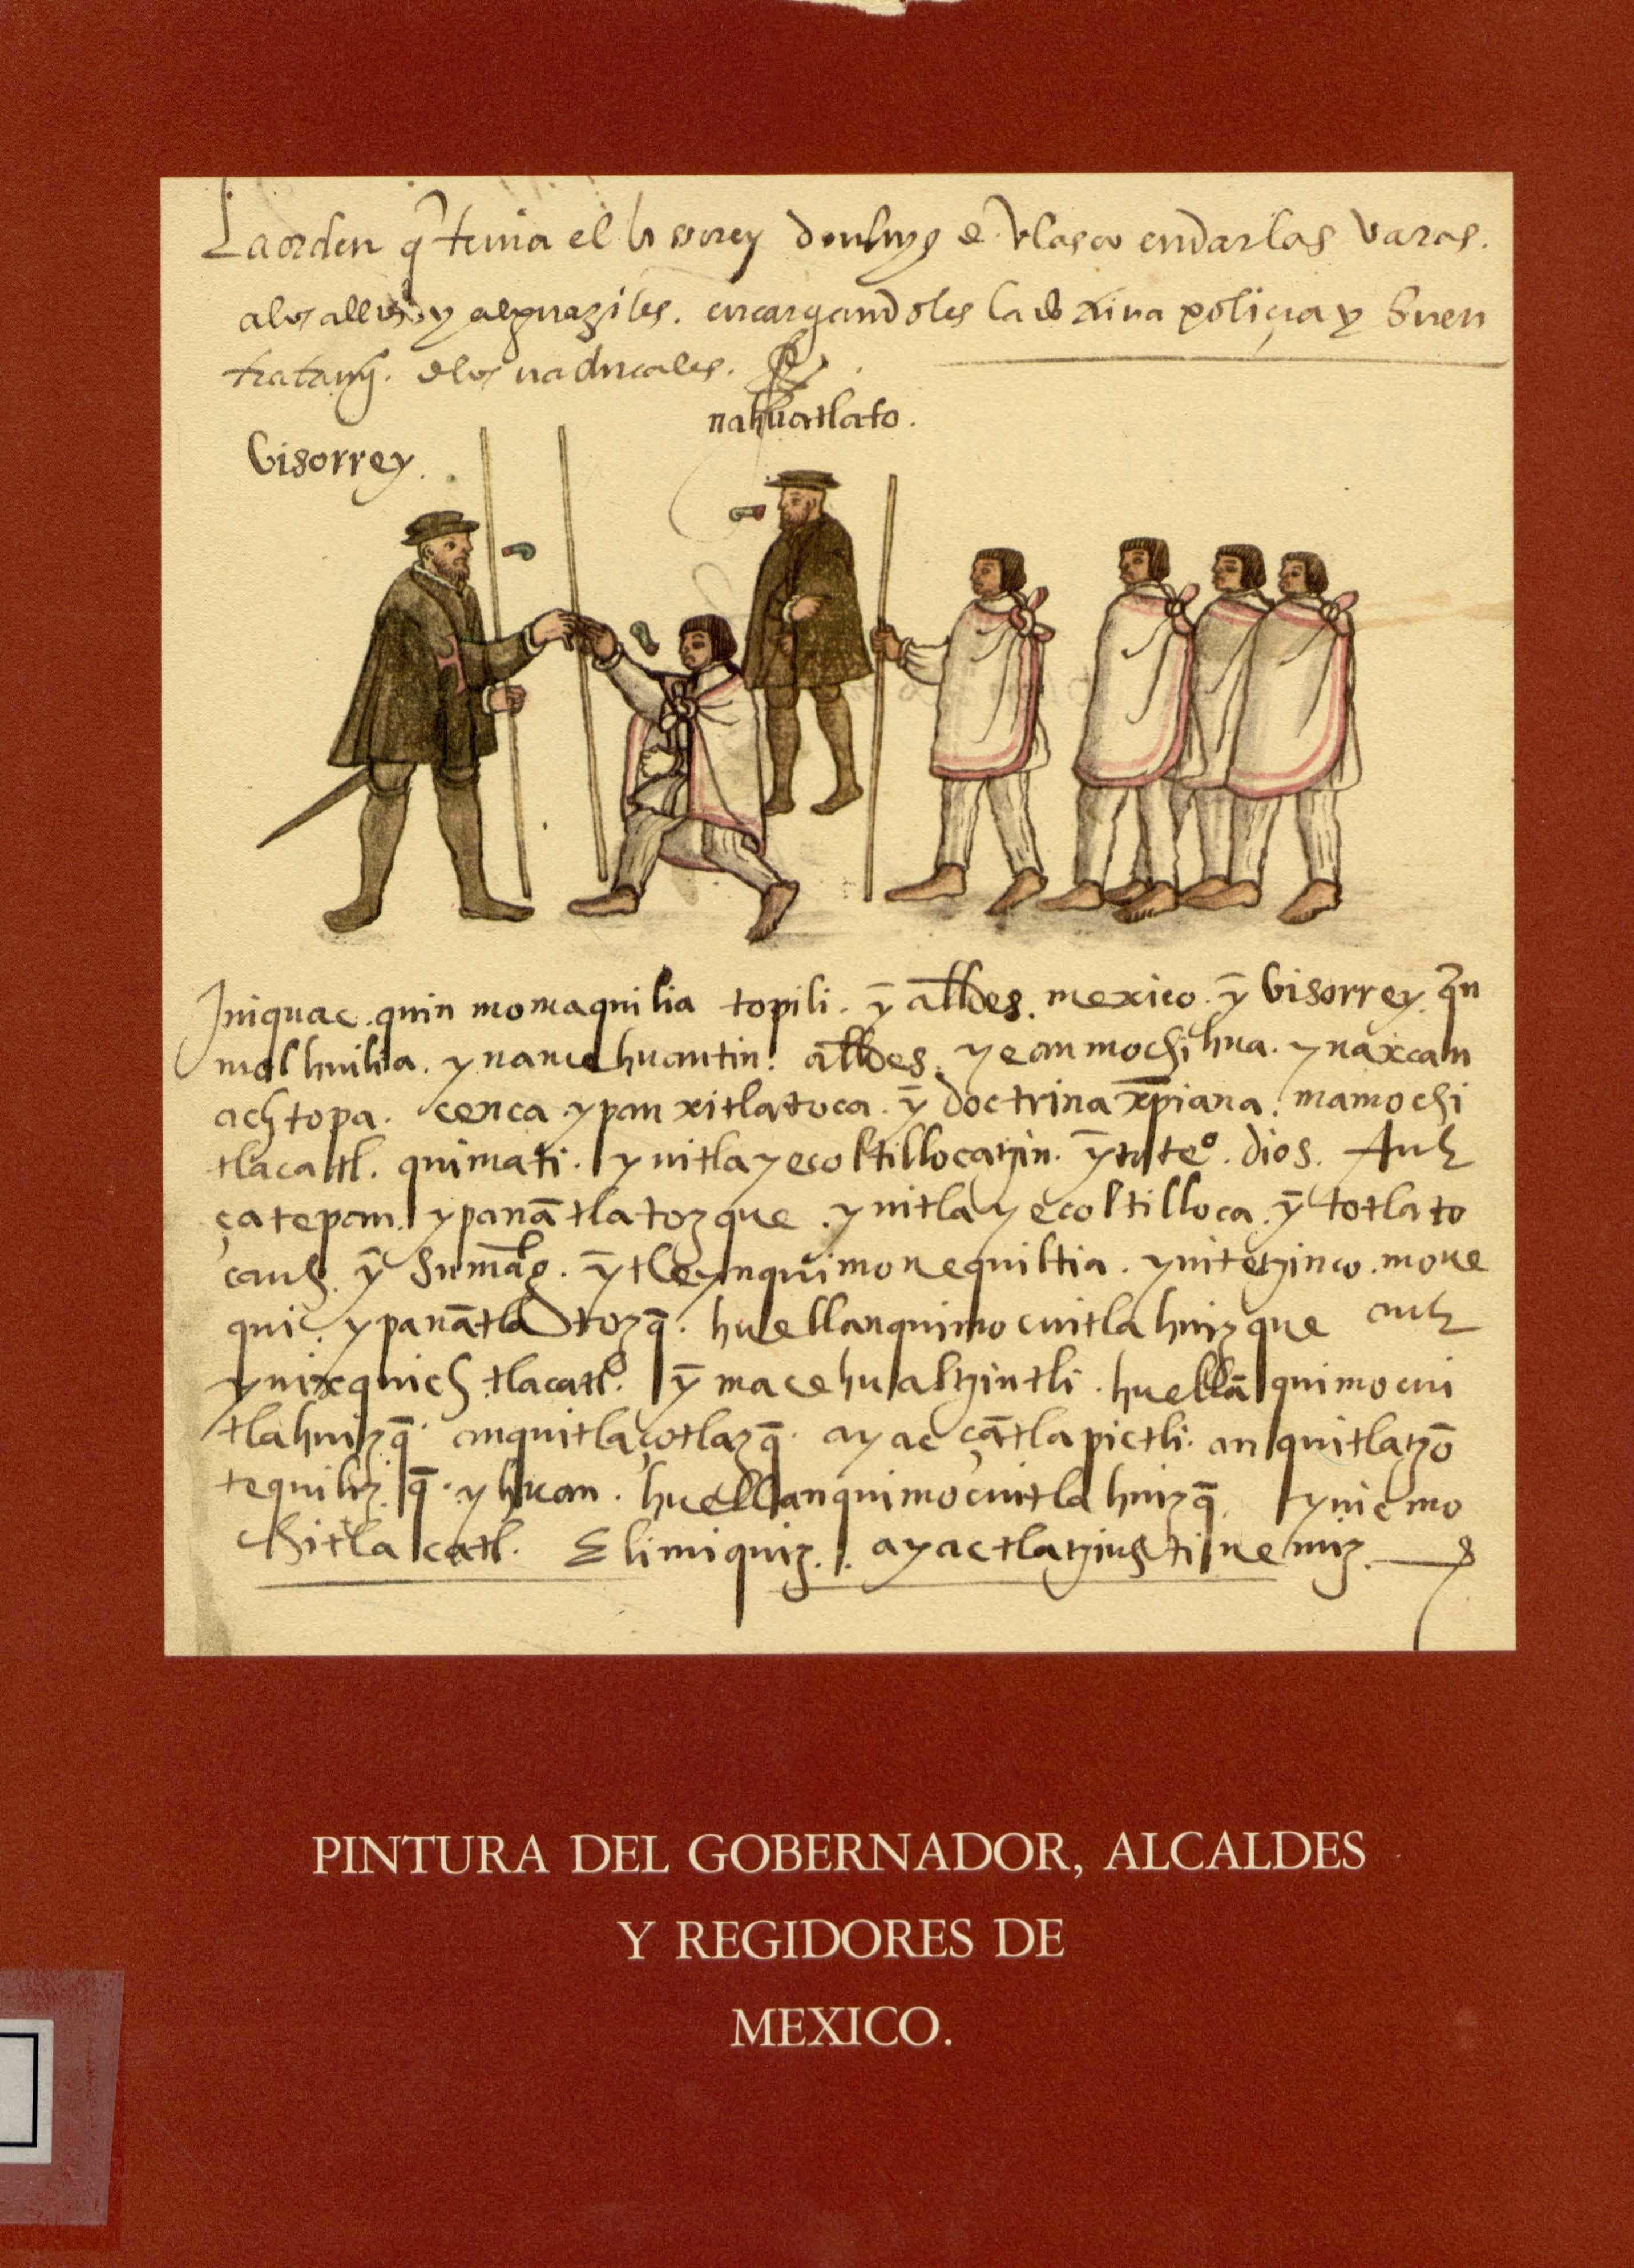 La orden q̃ tenia el bisorrey don luys de Velasco en dar las varas.
a los allđes y alguaziles. encargandoles la doctrina poliçia y buen
tratamyº. de los naturales.
nahuatlato.
Visorrey.
Iniquac. quin momaquilia topili. ȳ allđes. mexico. ȳ Visorrey. q̄n
molhuilia. ynamehuantin. allđes. yeanmochihua. ynaxcan
achtopa. cenca. ypan xitlatoca. ȳ doctrina xp̄iana. mamochi
tlacatl. quimati. ynitlayecoltillocatzin. ȳtoteº. dios. Auh
çatepan. ypanātlatozque. ynitlayecoltilloca. ȳ totlato
cauh. ȳ Sumagᵗ. ȳtleynquimonequiltia. ynitetzinco. mone
qui. ypanātlatozq̄. huellanquimocuitlahuizque auh
ynixquich tlacatl. ȳ macehualtzintli. huellā quimocui
tlahuizq̄. anquitlaçotlazq̄. ayac çātlapictli. anquitlatzō
tequiliz q̄. yhuan. huellanquimocuitlahuizq̄. ynicmo
chitlacatl. Elimiquiz. ayactlatziuhtinemiz.
PINTURA DEL GOBERNADOR, ALCALDES
Y REGIDORES DE
MEXICO.